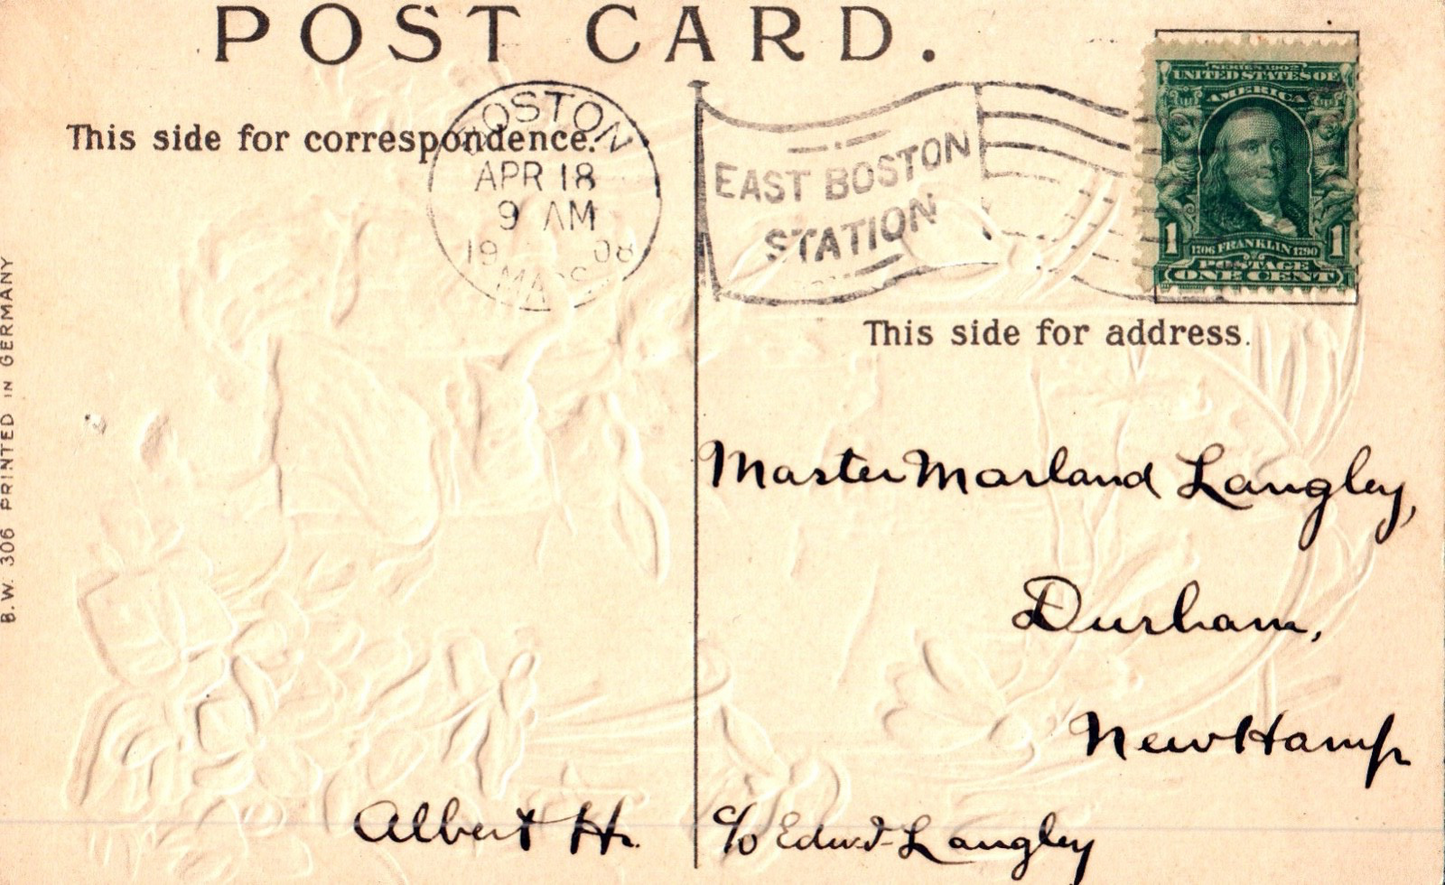 POST CARD.
This side for correspondence.
BOSTON
APR 18
9 AM
19 08
MASS
EAST BOSTON
STATION
SERIES 1902
UNITED STATES OF
AMERICA
1 1706 FRANKLIN 1790 1
POSTAGE
ONE CENT
This side for address.
B.W. 306 PRINTED IN GERMANY
Master Marland Langley,
Durham,
New Hamp
Albert H.
c/o Edw. J. Langley